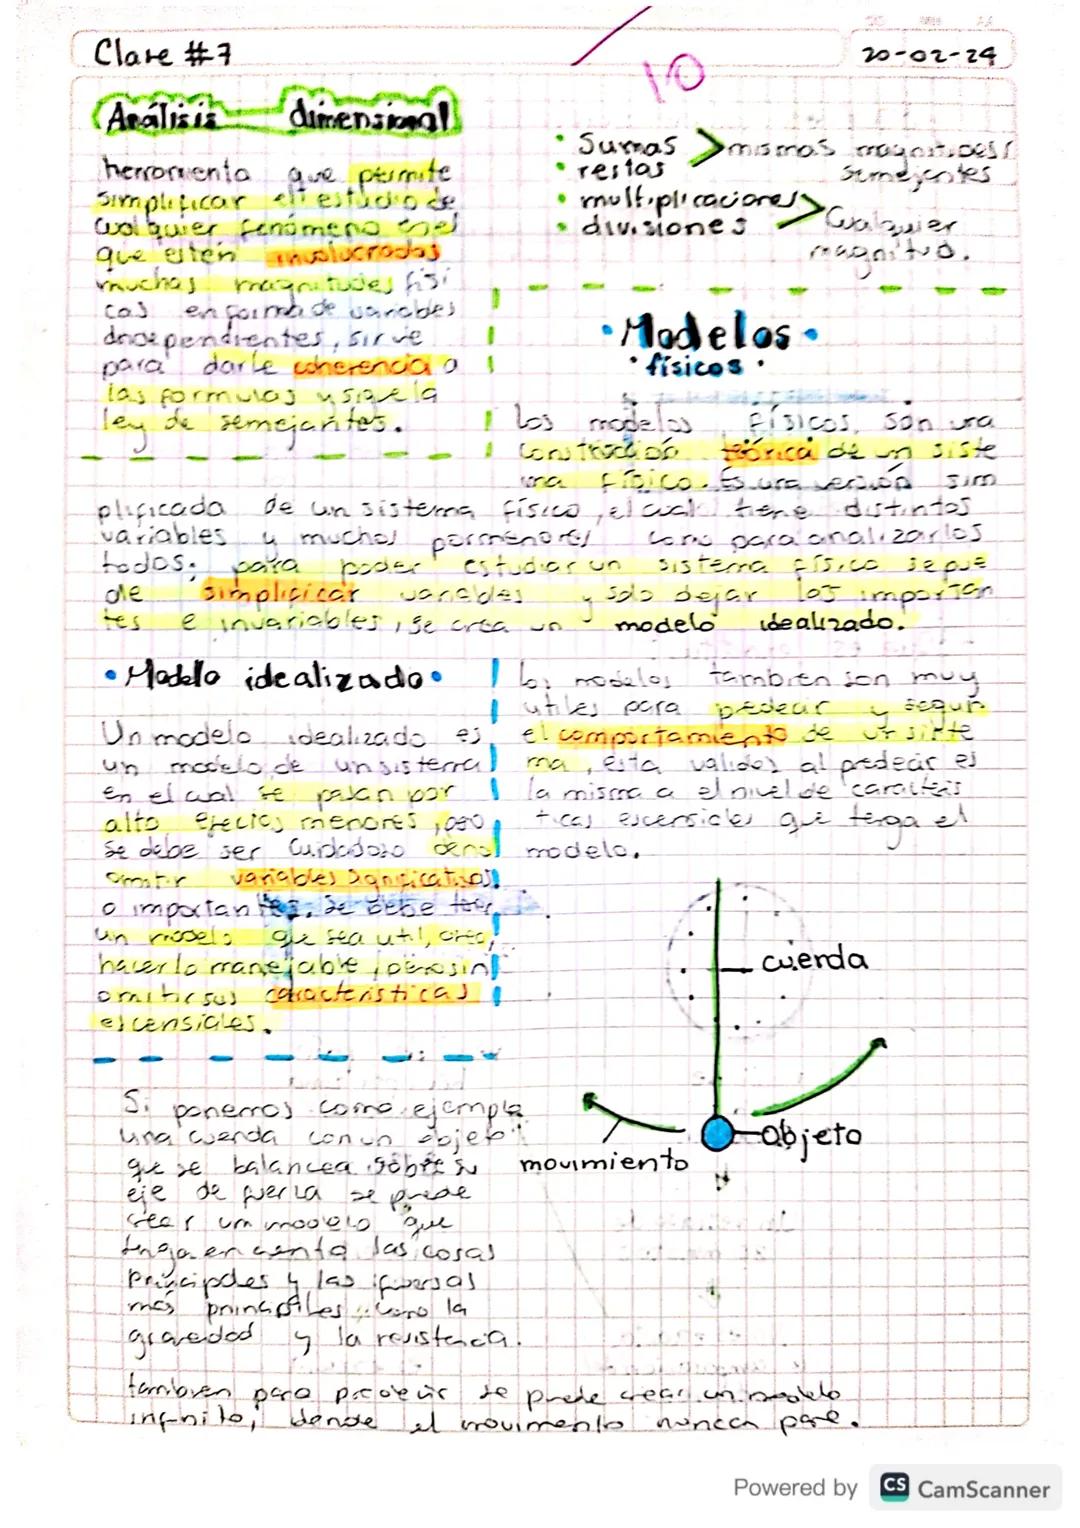 Clase #7
10
20-02-24
Análisis dimensional
herramienta que permite
simplificar el estudio de
cualquier fenómeno en el
que estén involucradas
muchas magnitudes físi
cas en forma de variables
independientes, sirve
para darle coherencia a
las formulas y sigue la
ley de semejantes.
• Sumas
• restas
> mismas magnitudes
semejantes
• multiplicaciones
• divisiones
> Cualquier
magnitud.
• Modelos •
• físicos •
Los modelos físicos, son una
construcción teórica de un siste
ma físico. Es una versión sim
plificada de un sistema físico, el cual tiene distintas
variables y muchos pormenores como para analizarlos
todos; para poder estudiar un sistema físico se pue
de simplificar variables y solo dejar las importan
tes e invariables, se crea un modelo idealizado.
• Modelo idealizado •
Un modelo idealizado es
un modelo de un sistema
en el cual se pasan por
alto efectos menores, pero
se debe ser cuidadoso de no
omitir variables significativas
o importantes. Se debe
un modelo que sea util,
hacerlo manejable, pero sin
omitir sus caracteristicas
escensiales.
los modelos tambien son muy
utiles para predecir y seguir
el comportamiento de un siste
ma, esta validez al predecir es
la misma a el nivel de caracteris
ticas escensiales que tenga el
modelo.
cuerda
objeto
movimiento
Si ponemos como ejemplo
una cuerda con un objeto
que se balancea sobre su
eje de fuerza se puede
crear un modelo que
tenga en cuenta las cosas
principales y las fuerzas
más principales como la
gravedad y la resistencia.
tambien para predecir se puede crear un modelo
infinito, donde el movimento nunca pare.
Powered by CS CamScanner